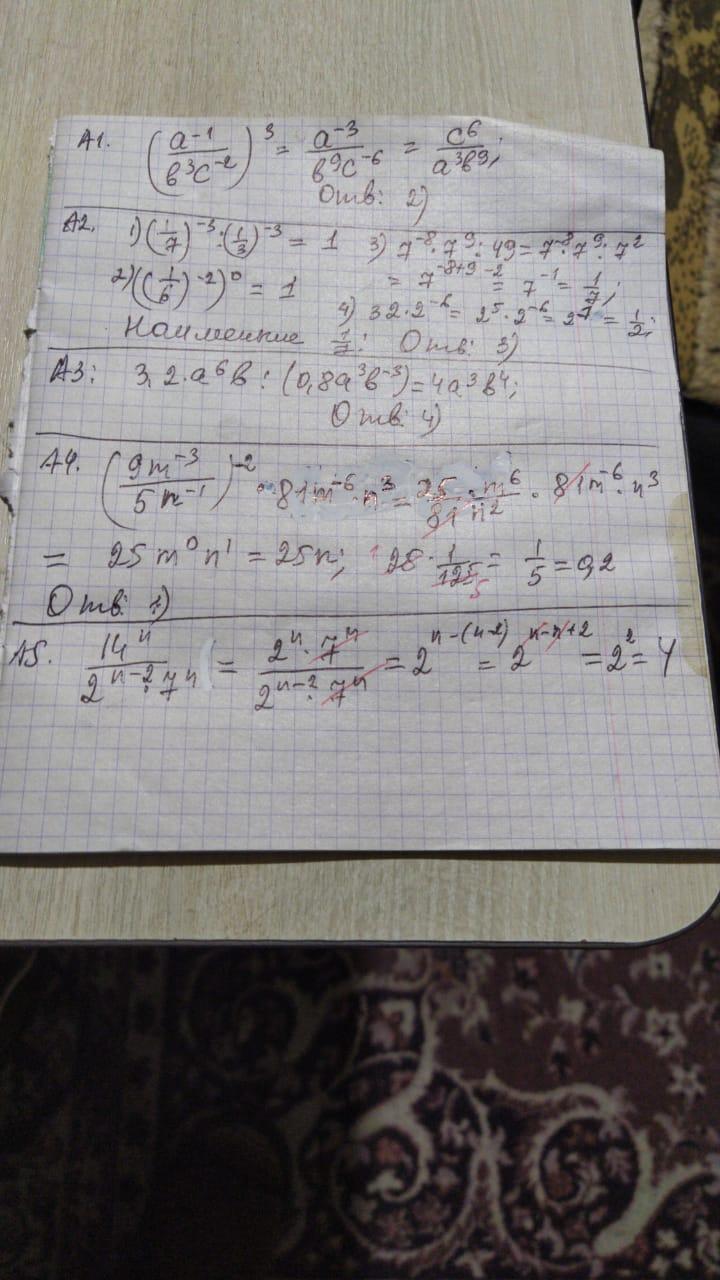 А1. (a⁻¹/в³c⁻²)³ = a⁻³/в⁹c⁻⁶ = c⁶/a³в⁹;
Отв: 2)
А2. 1) (1/7)⁻³ : (1/3)⁻³ = 1 3) 7⁻⁸·7⁹ : 49 = 7⁻⁸·7⁹ : 7²
2) ((1/6)⁻²)⁰ = 1 = 7⁻⁸⁺⁹⁻² = 7⁻¹ = 1/7;
4) 32·2⁻⁶ = 2⁵·2⁻⁶ = 2⁻¹ = 1/2;
Наименьшие 1/7: Отв: 3)
А3: 3,2·a⁶в : (0,8a³в⁻³) = 4a³в⁴;
Отв: 4)
А4. (9m⁻³/5n⁻¹)⁻² · 81m⁻⁶·n³ = 25·m⁶/81n² · 81m⁻⁶·n³
= 25m⁰n¹ = 25n; 25·1/125 = 1/5 = 0,2
Отв: 1)
А5. 14ⁿ/2ⁿ⁻²·7ⁿ = 2ⁿ·7ⁿ/2ⁿ⁻²·7ⁿ = 2ⁿ⁻⁽ⁿ⁻²⁾ = 2ⁿ⁻ⁿ⁺² = 2² = 4